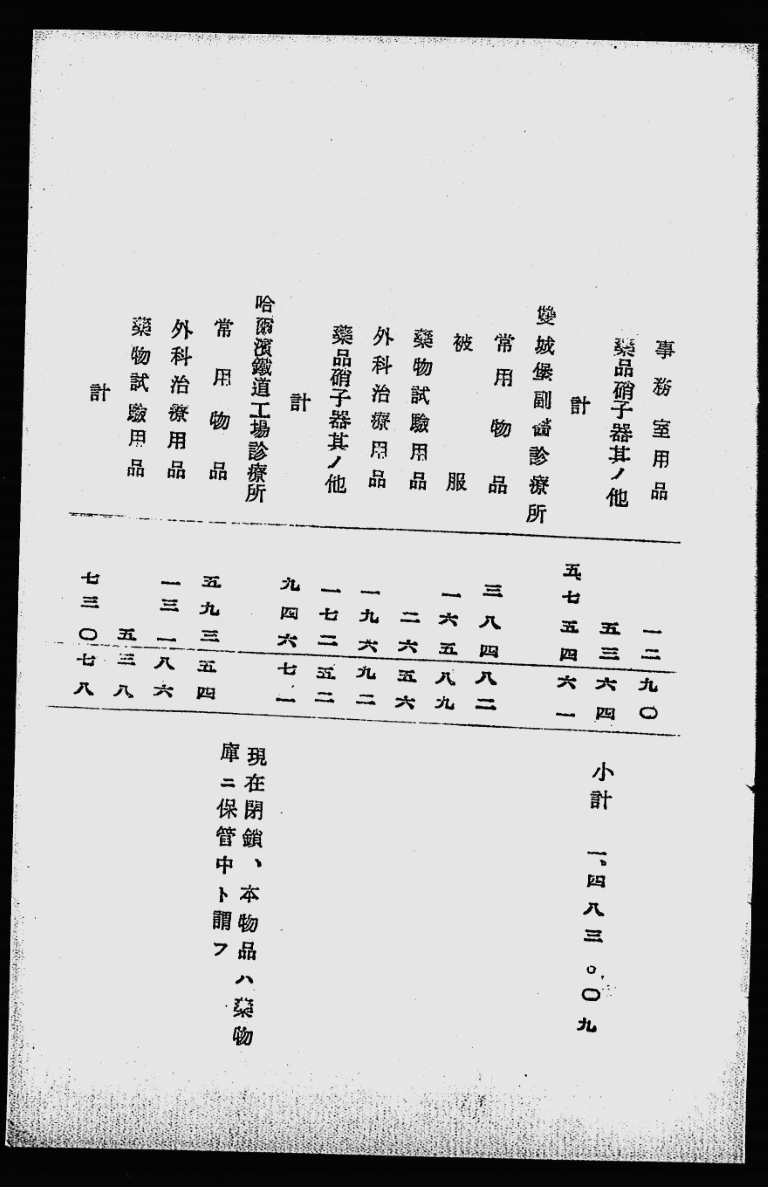 事務室用品 一二 九〇
藥品硝子器其ノ他 五三 六四
小計 一、四八三。〇九
計 五、七五四 六一
雙城堡副醫診療所
常用物品 三八四 八二
被服 一六五 八九
藥物試驗用品 二六 五六
外科治療用品 一九六 九二
藥品硝子器其ノ他 一七二 五二
計 九四六 七一
哈爾濱鐵道工場診療所
現在閉鎖、本物品ハ藥物
庫ニ保管中ト謂フ
常用物品 五九三 五四
外科治療用品 一三一 八六
藥物試驗用品 五 三八
計 七三〇 七八